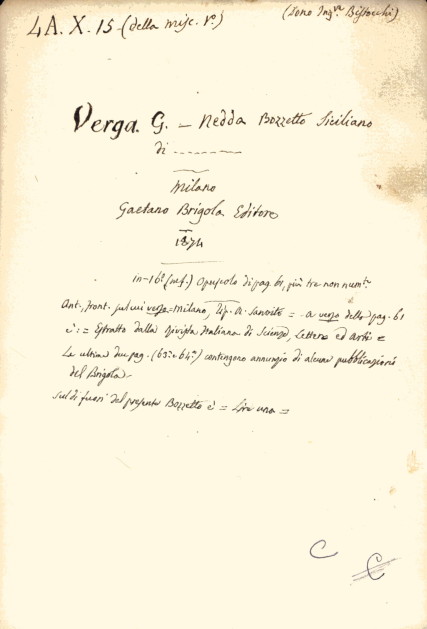 4A. X. 15 (della misc. 1ª.)
(Dono Ingre. Bistocchi)
Verga. G. – Nedda Bozzetto Siciliano
di --------
Milano
Gaetano Brigola Editore
1874
in-16º (rif.) Opuscolo di pag. 61, più tre non numte.
Ant., front. sul cui verso = Milano, Tip. A. Sanvito = - a verso della pag. 61
è: = Estratto dalla Rivista Italiana di Scienze, Lettere ed Arti =
Le ultime due pag. (63ª e 64ª) contengono annunzio di alcune pubblicazioni
del Brigola -
Sul di fuori del presente Bozzetto è = Lire una =
C
C